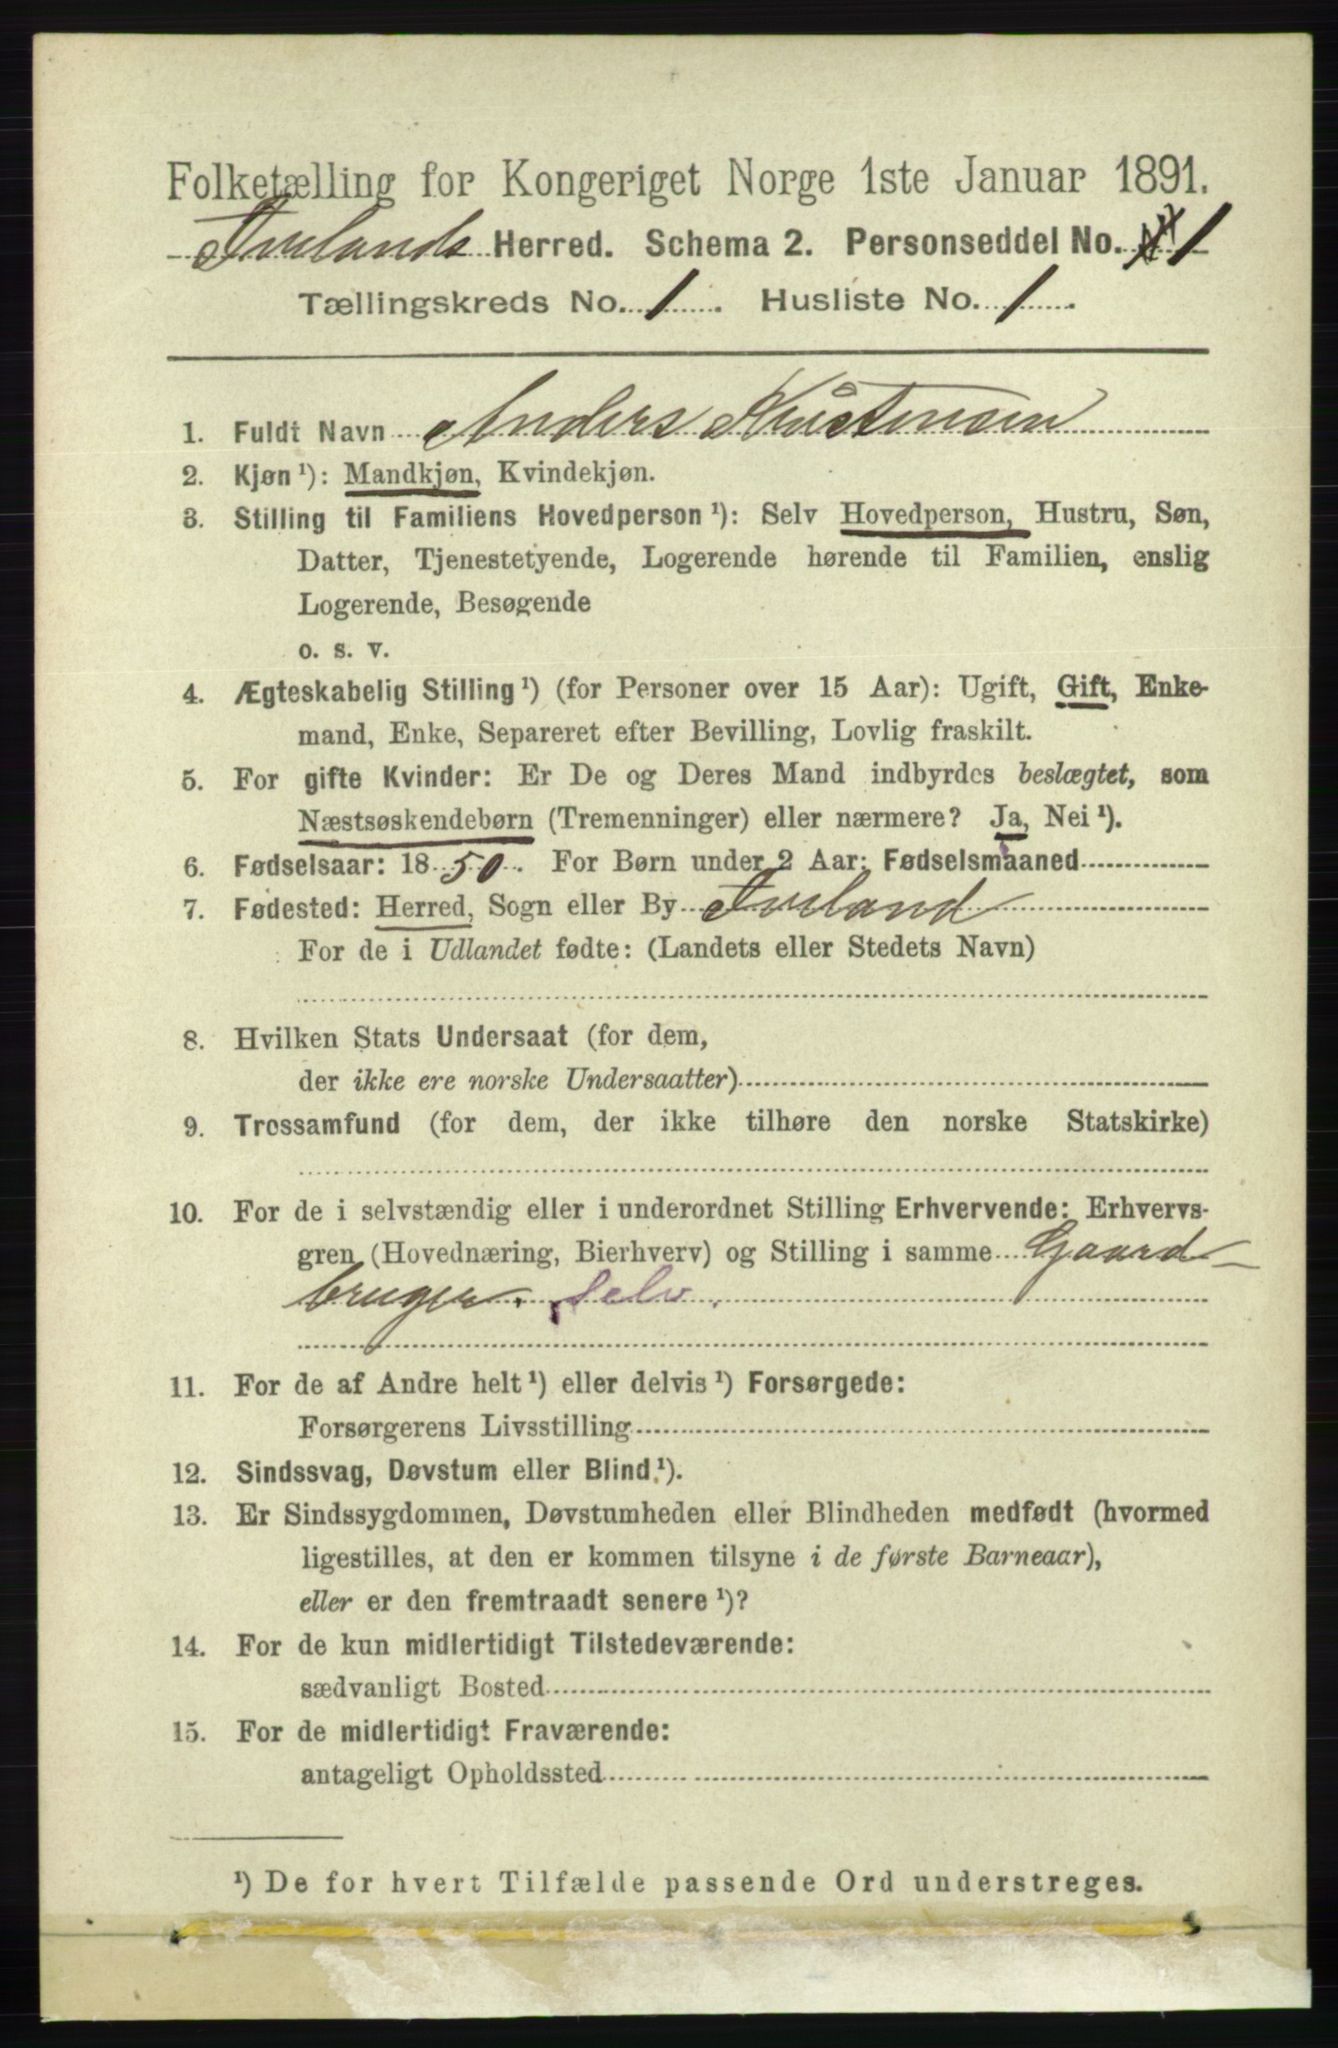 Folketælling for Kongeriget Norge 1ste Januar 1891.
Ivelands Herred. Schema 2. Personseddel No. 1
Tællingskreds No. 1. Husliste No. 1.
1. Fuldt Navn Anders Kristensen
2. Kjøn¹): Mandkjøn, Kvindekjøn.
3. Stilling til Familiens Hovedperson¹): Selv Hovedperson, Hustru, Søn,
Datter, Tjenestetyende, Logerende hørende til Familien, enslig
Logerende, Besøgende
o. s. v.
4. Ægteskabelig Stilling¹) (for Personer over 15 Aar): Ugift, Gift, Enke-
mand, Enke, Separeret efter Bevilling, Lovlig fraskilt.
5. For gifte Kvinder: Er De og Deres Mand indbyrdes beslægtet, som
Næstsøskendebørn (Tremenninger) eller nærmere? Ja, Nei¹).
6. Fødselsaar: 1850. For Børn under 2 Aar: Fødselsmaaned
7. Fødested: Herred, Sogn eller By Iveland
For de i Udlandet fødte: (Landets eller Stedets Navn)
8. Hvilken Stats Undersaat (for dem,
der ikke ere norske Undersaatter)
9. Trossamfund (for dem, der ikke tilhøre den norske Statskirke)
10. For de i selvstændig eller i underordnet Stilling Erhvervende: Erhvervs-
gren (Hovednæring, Bierhverv) og Stilling i samme Gaard-
bruger. Selv.
11. For de af Andre helt¹) eller delvis¹) Forsørgede:
Forsørgerens Livsstilling
12. Sindssvag, Døvstum eller Blind¹).
13. Er Sindssygdommen, Døvstumheden eller Blindheden medfødt (hvormed
ligestilles, at den er kommen tilsyne i de første Barneaar),
eller er den fremtraadt senere¹)?
14. For de kun midlertidigt Tilstedeværende:
sædvanligt Bosted
15. For de midlertidigt Fraværende:
antageligt Opholdssted
¹) De for hvert Tilfælde passende Ord understreges.